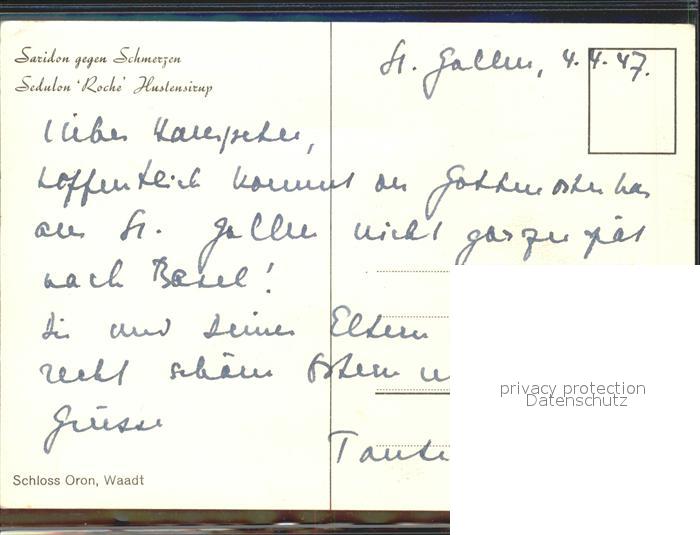 Saridon gegen Schmerzen
Sedulon 'Roche' Hustensirup
St. Gallen, 4.4.47.
Lieber Hanspeter,
hoffentlich kommt der Gottenosterhas
aus St. Gallen nicht gar zu spät
nach Basel!
Dir und Deinen Eltern
recht schöne Ostern u
Grüsse
Tante
Schloss Oron, Waadt
privacy protection
Datenschutz